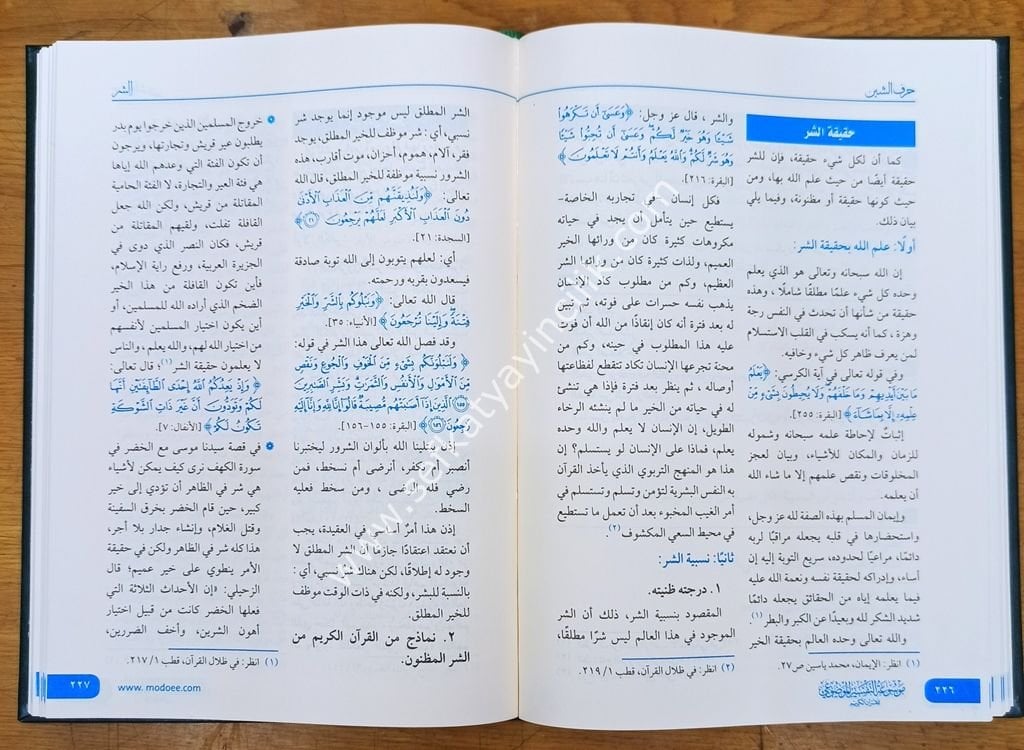 حرف الشين
حقيقة الشر
كما أن لكل شيء حقيقة، فإن للشر
حقيقة أيضًا من حيث علم الله بها، ومن
حيث كونها حقيقة أو مظنونة، وفيما يلي
بيان ذلك.
أولًا: علم الله بحقيقة الشر:
إن الله سبحانه وتعالى هو الذي يعلم
وحده كل شيء علمًا مطلقًا شاملًا، وهذه
حقيقة من شأنها أن تحدث في النفس رجة
وهزة، كما أنه يسكب في القلب الاستسلام
لمن يعرف ظاهر كل شيء وخافيه.
وفي قوله تعالى في آية الكرسي: ﴿يَعْلَمُ
مَا بَيْنَ أَيْدِيهِمْ وَمَا خَلْفَهُمْ وَلَا يُحِيطُونَ بِشَيْءٍ مِنْ
عِلْمِهِ إِلَّا بِمَا شَاءَ﴾ [البقرة: ٢٥٥].
إثباتٌ لإحاطة علمه سبحانه وشموله
للزمان والمكان للأشياء، وبيان لعجز
المخلوقات ونقص علمهم إلا ما شاء الله
أن يعلمه.
وإيمان المسلم بهذه الصفة لله عز وجل،
واستحضارها في قلبه يجعله مراقبًا لربه
دائمًا، مراعيًا لحدوده، سريع التوبة إليه إن
أساء، وإدراكه لحقيقة نفسه ونعمة الله عليه
فيما يعلمه إياه من الحقائق يجعله دائمًا
شديد الشكر لله وبعيدًا عن الكبر والبطر(١).
والله تعالى وحده العالم بحقيقة الخير
(١) انظر: الإيمان، محمد ياسين ص٢٧.
والشر، قال عز وجل: ﴿وَعَسَى أَنْ تَكْرَهُوا
شَيْئًا وَهُوَ خَيْرٌ لَكُمْ وَعَسَى أَنْ تُحِبُّوا شَيْئًا
وَهُوَ شَرٌّ لَكُمْ وَاللَّهُ يَعْلَمُ وَأَنْتُمْ لَا تَعْلَمُونَ﴾
[البقرة: ٢١٦].
فكل إنسان -في تجاربه الخاصة-
يستطيع حين يتأمل أن يجد في حياته
مكروهات كثيرة كان من ورائها الخير
العميم، ولذات كثيرة كان من ورائها الشر
العظيم، وكم من مطلوب كاد الإنسان
يذهب نفسه حسرات على فوته، ثم تبين
له بعد فترة أنه كان إنقاذًا من الله أن فوت
عليه هذا المطلوب في حينه، وكم من
محنة تجرعها الإنسان تكاد تتقطع لفظاعتها
أوصاله، ثم ينظر بعد فترة فإذا هي تنشئ
له في حياته من الخير ما لم ينشئه الرخاء
الطويل، إن الإنسان لا يعلم والله وحده
يعلم، فماذا على الإنسان لو يستسلم؟ إن
هذا هو المنهج التربوي الذي يأخذ القرآن
به النفس البشرية لتؤمن وتسلم وتستسلم في
أمر الغيب المخبوء بعد أن تعمل ما تستطيع
في محيط السعي المكشوف(٢).
ثانيًا: نسبية الشر:
١. درجته ظنيته.
المقصود بنسبية الشر، ذلك أن الشر
الموجود في هذا العالم ليس شرًا مطلقًا،
(٢) انظر: في ظلال القرآن، قطب ١/ ٢١٩.
موسوعة التفسير الموضوعي
للقرآن الكريم
٢٢٦
الشر
الشر المطلق ليس موجود إنما يوجد شر
نسبي، أي: شر موظف للخير المطلق، يوجد
فقر، آلام، هموم، أحزان، موت أقارب، هذه
الشرور نسبية موظفة للخير المطلق، قال الله
تعالى: ﴿وَلَنُذِيقَنَّهُمْ مِنَ الْعَذَابِ الْأَدْنَى
دُونَ الْعَذَابِ الْأَكْبَرِ لَعَلَّهُمْ يَرْجِعُونَ ٢١﴾
[السجدة: ٢١].
أي: لعلهم يتوبون إلى الله توبة صادقة
فيسعدون بقربه ورحمته.
قال الله تعالى: ﴿وَنَبْلُوكُمْ بِالشَّرِّ وَالْخَيْرِ
فِتْنَةً وَإِلَيْنَا تُرْجَعُونَ﴾ [الأنبياء: ٣٥].
وقد فصل الله تعالى هذا الشر في قوله:
﴿وَلَنَبْلُوَنَّكُمْ بِشَيْءٍ مِنَ الْخَوْفِ وَالْجُوعِ وَنَقْصٍ
مِنَ الْأَمْوَالِ وَالْأَنْفُسِ وَالثَّمَرَاتِ وَبَشِّرِ الصَّابِرِينَ
١٥٥ الَّذِينَ إِذَا أَصَابَتْهُمْ مُصِيبَةٌ قَالُوا إِنَّا لِلَّهِ وَإِنَّا إِلَيْهِ
رَاجِعُونَ ١٥٦﴾ [البقرة: ١٥٥-١٥٦].
إذن يبتلينا الله بألوان الشرور ليختبرنا
أنصبر أم نكفر، أنرضى أم نسخط، فمن
رضي فله الرضى، ومن سخط فعليه
السخط.
إذن هذا أمرٌ أساسي في العقيدة، يجب
أن نعتقد اعتقادًا جازمًا أن الشر المطلق لا
وجود له إطلاقًا، لكن هناك شر نسبي، أي:
بالنسبة للبشر، ولكنه في ذات الوقت موظف
للخير المطلق.
٢. نماذج من القرآن الكريم من
الشر المظنون.
خروج المسلمين الذين خرجوا يوم بدر
يطلبون عير قريش وتجارتها، ويرجون
أن تكون الفئة التي وعدهم الله إياها
هي فئة العير والتجارة، لا الفئة الحامية
المقاتلة من قريش، ولكن الله جعل
القافلة تفلت، ولقيهم المقاتلة من
قريش، فكان النصر الذي دوى في
الجزيرة العربية، ورفع راية الإسلام،
فأين تكون القافلة من هذا الخير
الضخم الذي أراده الله للمسلمين، أو
أين يكون اختيار المسلمين لأنفسهم
من اختيار الله لهم، والله يعلم، والناس
لا يعلمون حقيقة الشر(١)؛ قال تعالى:
﴿وَإِذْ يَعِدُكُمُ اللَّهُ إِحْدَى الطَّائِفَتَيْنِ أَنَّهَا
لَكُمْ وَتَوَدُّونَ أَنَّ غَيْرَ ذَاتِ الشَّوْكَةِ
تَكُونُ لَكُمْ﴾ [الأنفال: ٧].
في قصة سيدنا موسى مع الخضر في
سورة الكهف نرى كيف يمكن لأشياء
هي شر في الظاهر أن تؤدي إلى خير
كبير، حين قام الخضر بخرق السفينة
وقتل الغلام، وإنشاء جدار بلا أجر،
هذا كله شر في الظاهر ولكن في حقيقة
الأمر ينطوي على خير عميم؛ قال
الزحيلي: «إن الأحداث الثلاثة التي
فعلها الخضر كانت من قبيل اختيار
أهون الشرين، وأخف الضررين،
(١) انظر: في ظلال القرآن، قطب ١/ ٢١٧.
www. modoee.com
٢٢٧